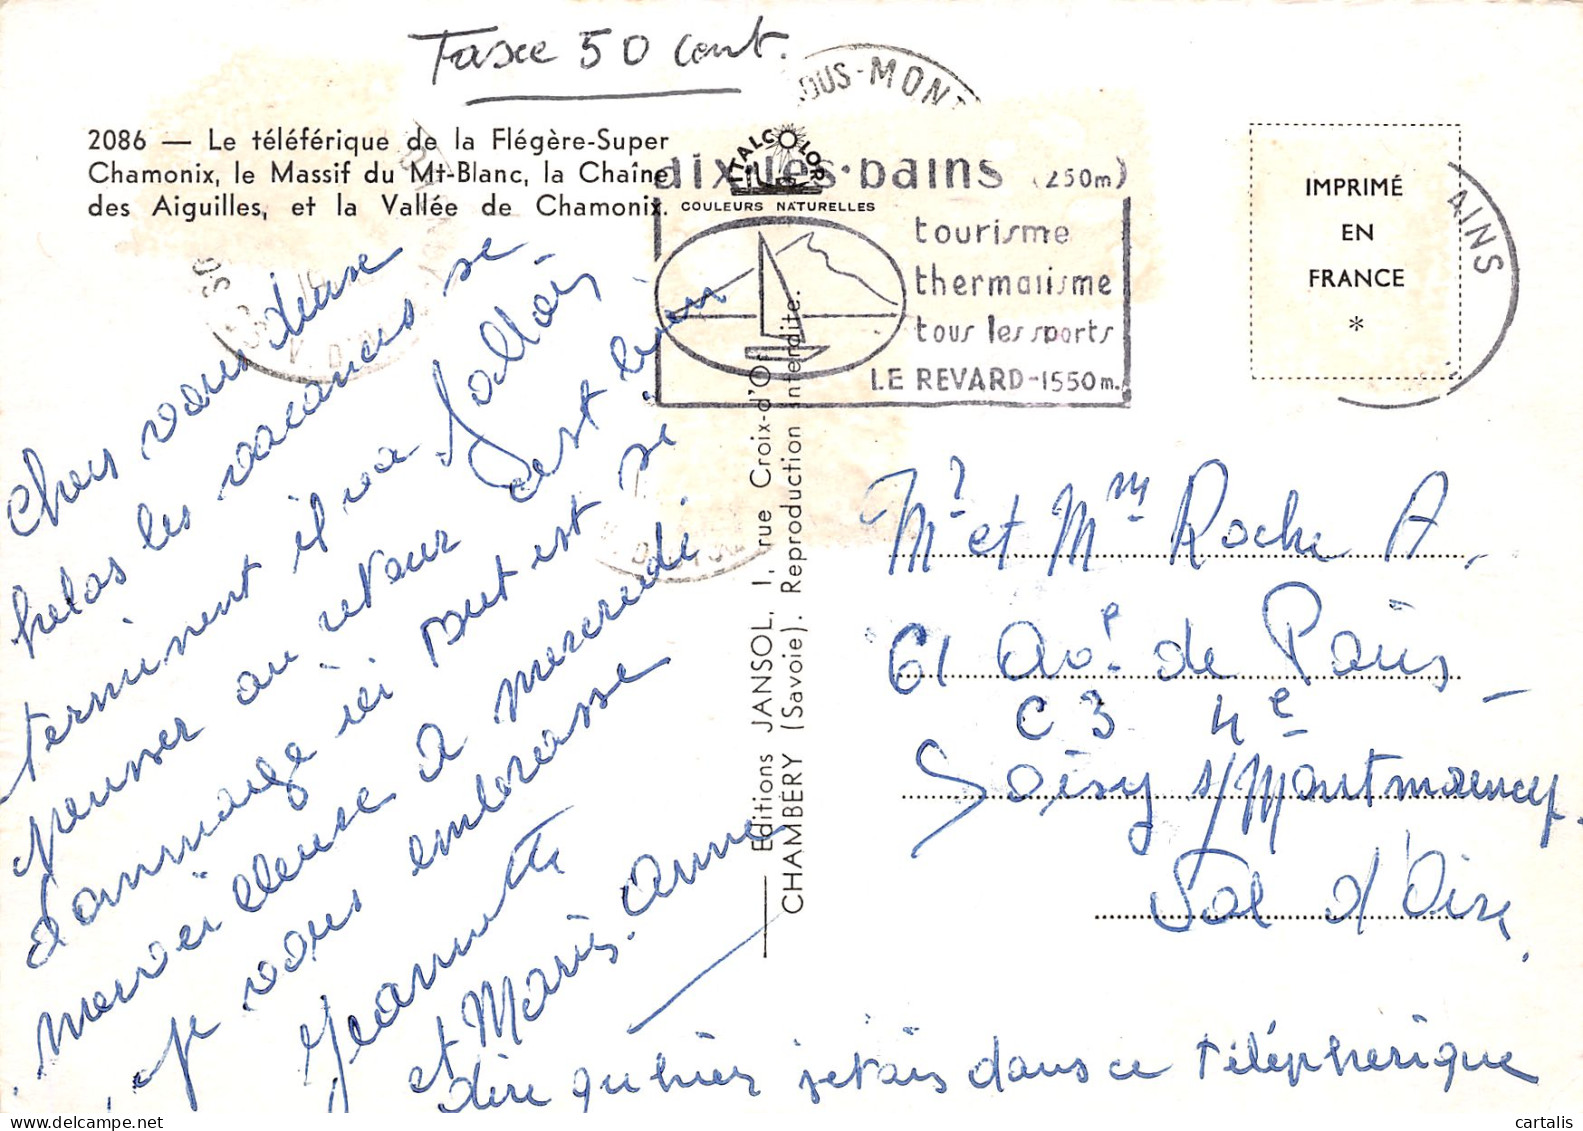 Taxe 50 cent.
2086 — Le téléférique de la Flégère-Super
Chamonix, le Massif du Mt-Blanc, la Chaîne
des Aiguilles, et la Vallée de Chamonix.
OUS-MONT
ITALCOLOR
COULEURS NATURELLES
aix-les-bains (250m)
tourisme
thermalisme
tous les sports
LE REVARD-1550m.
AINS
IMPRIMÉ
EN
FRANCE
*
Chers vous deux
helas les vacances se
terminent il va falloir
penser au retour c'est bien
dommage ici tout est si
merveilleux à mercredi
je vous embrasse
Jeannette
et Marie-Anne
dire qu'hier jetais dans ce téléphérique
Editions JANSOL, 1, rue Croix-d'Or
CHAMBÉRY (Savoie). Reproduction interdite.
Mr et Mme Roche A.
61 Avé de Paris
C 3 4e
Soisy s/Montmorency
Val d'Oise
cartalis